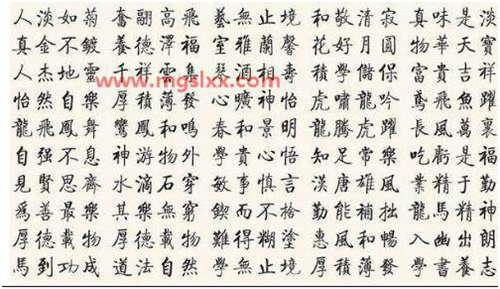 人淡如菊 奮翮高飛 藝無止境 和敬清寂 真味是淡
真金不鍍 養德澤福 室雅蘭馨 花好月圓 物華天寶
人杰地靈 千祥雲集 琴酒相壽 學儲保 富貴吉祥
www.mgslxx.com
怡然自樂 厚積薄發 心曠神怡 虎嘯龍吟 鳶飛魚躍
龍飛鳳舞 鸞鳳和鳴 春和景明 龍騰虎躍 長風萬裏
自强不息 神游物外 學貴心悟 知足常樂 吃虧是福
見賢思齊 水滴石穿 敏事慎言 漢唐雄風 業精于勤
為善最樂 其樂無窮 鍥而不捨 勤能補拙 龍馬精神
厚德載物 厚德載物 難得糊塗 惠風和暢 入幽出朗
馬到功成 道法自然 學無止境 厚積薄發 學書養志